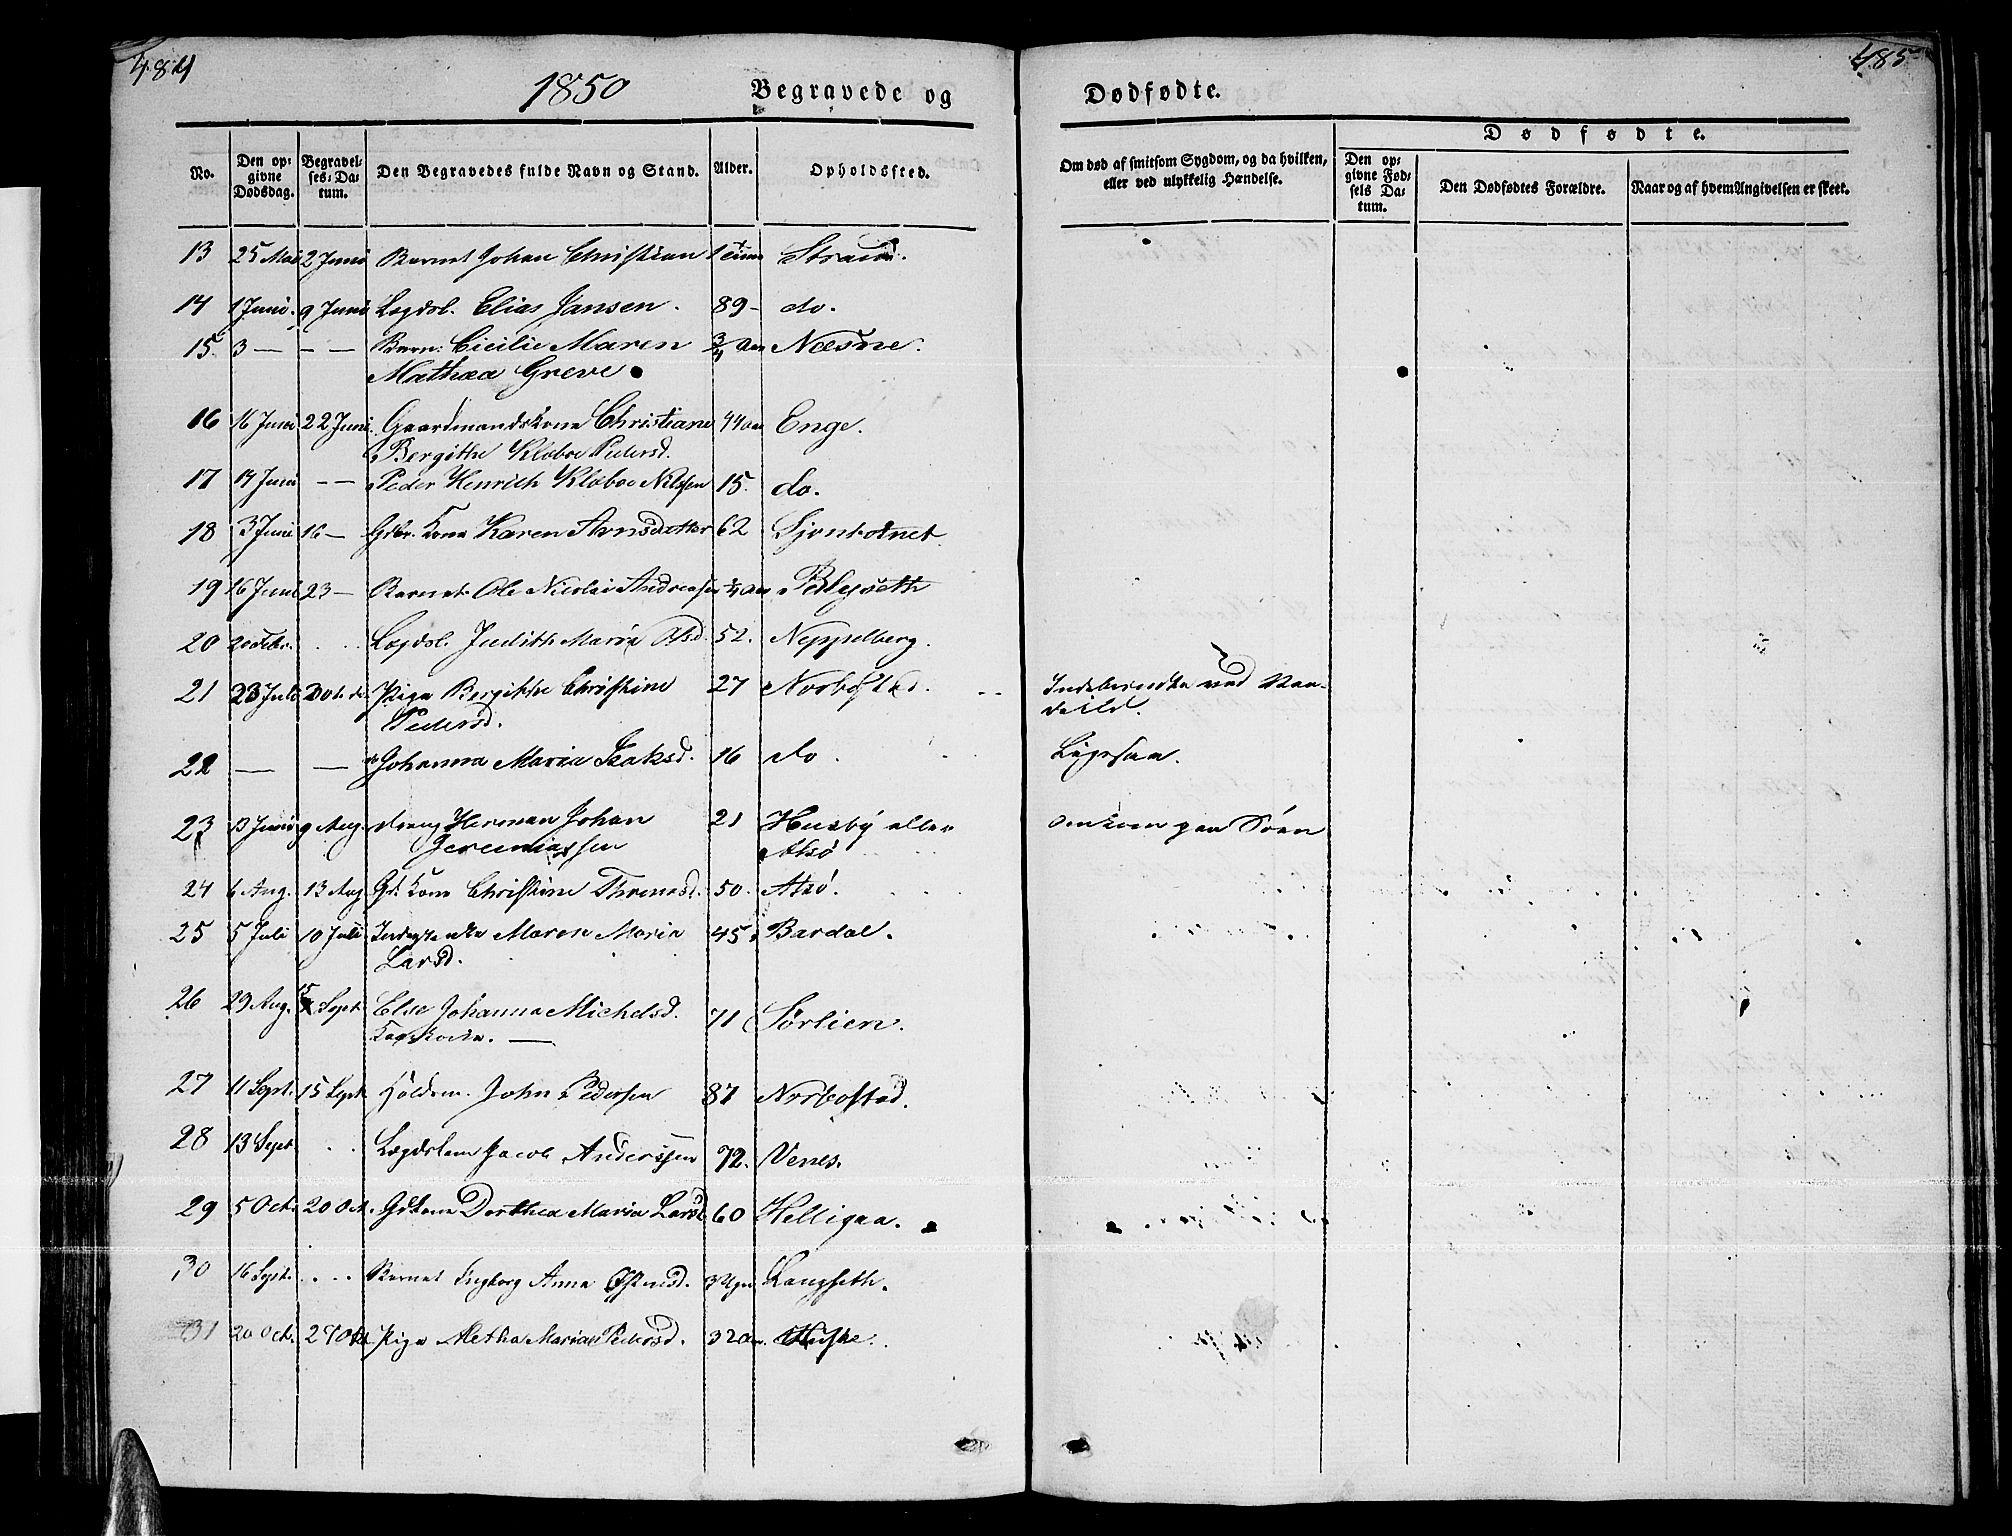 484
485
1850 Begravede og Dødfødte.
Dødfødte.
No.
Den op-
givne
Dødsdag.
Begravel-
ses-Da-
tum.
Den Begravedes fulde Navn og Stand.
Alder.
Opholdssted.
Om død af smitsom Sygdom, og da hvilken,
eller ved ulykkelig Hændelse.
Den op-
givne Fød-
sels Da-
tum.
Den Dødfødtes Forældre.
Naar og af hvem Angivelsen er skeet.
13 25 Mai 2 Juni Barnet Johan Christian
14 1 Juni. 9 Juni Lægdsl. Elias Jansen. 89 - do.
15. 3 — — — Barn: Cicilie Maren 3/4 Aar Næsne.
Mathæa Greve
16 16 Juni 22 Juni Gaardmandskone Christiane 44 aar Enge.
Bergitte Kloboe Pedersd.
17 14 Juni — — Peder Henrich Kloboe Nilssen 15. do.
18 3 Juni 16 — Gbr. Kone Karen Arnsdatter 62 Sjonbotnet
19 16 Juni 23 — Barnet Ole Nicolai Andreasen Aar
20 . . . Lægdsl. Judith Maria Olsd. 52. Neppelberg.
21 23 Juli Pige Bergitte Christine 27 Norbostad. Indebrendte ved Vaa-
Pedersd. deild.
22 — — Johanna Maria Isaksd. 16 do. Ligesaa.
23 13 Juni 9 Aug. dreng Herman Johan 21 Husby eller omkom paa Søen
Jeremiassen Alsø
24 6 Aug. 13 Aug Gd. Kone Christine Thomasd. 50. Alsø.
25 5 Juli 10 Juli Maren Maria 45 Bardal.
Larsd.
26 29 Aug. 15 Sept. Else Johanna Michelsd. 71 Sørlien.
27 11 Sept. 15 Sept. Holdem. John Pedersen 87 Norbostad.
28 13 Sept . . Lægdslem Jacob Anderssen 72. Venes.
29 5 Oct. 20 Oct. Gdkone Dorthea Maria Larsd 60 Helligaa.
30 16 Sept. . . . . Barnet Ingborg Anna 3 Uger Langseth.
31 20 Oct. 27 Oct Pige Metha Maria Pedersd. 32 Aar.